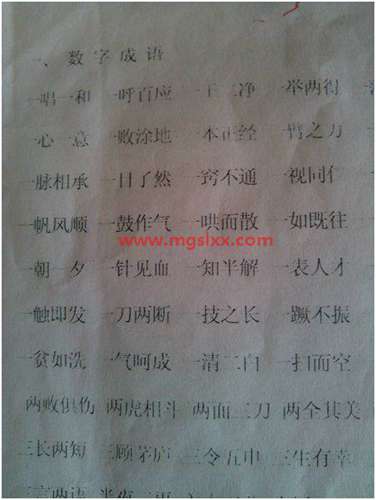 一、数字成语
一唱一和 一呼百应 一干二净 一举两得
一心一意 一败涂地 一本正经 一臂之力
一脉相承 一目了然 一窍不通 一视同仁
一帆风顺 一鼓作气 一哄而散 一如既往
www.mgslxx.com
一朝一夕 一针见血 一知半解 一表人才
一触即发 一刀两断 一技之长 一蹶不振
一贫如洗 一气呵成 一清二白 一扫而空
两败俱伤 两虎相斗 两面三刀 两全其美
三长两短 三顾茅庐 三令五申 三生有幸
三言两语